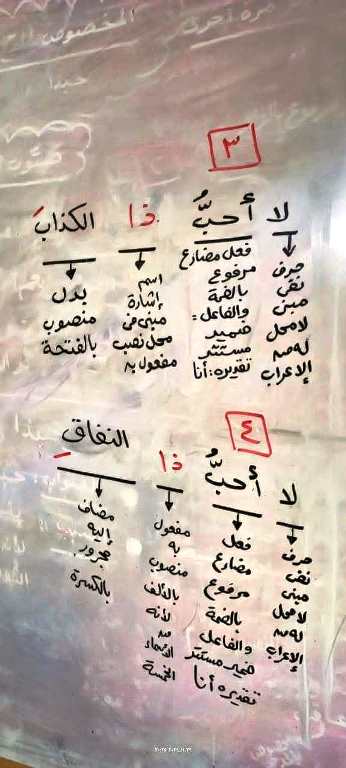 ٣
لا أحبُّ ذا الكذابَ
حرف
نفي
مبني
لا محل
له من
الإعراب
فعل مضارع
مرفوع
بالضمة
والفاعل:
ضمير
مستتر
تقديره: أنا
اسم
إشارة
مبني في
محل نصب
مفعول به
بدل
منصوب
بالفتحة
٤
لا أحبُّ ذا النفاقِ
حرف
نفي
مبني
لا محل
له من
الإعراب
فعل
مضارع
مرفوع
بالضمة
والفاعل
ضمير مستتر
تقديره أنا
مفعول
به
منصوب
بالألف
لأنه
من
الأسماء
الخمسة
مضاف
إليه
مجرور
بالكسرة